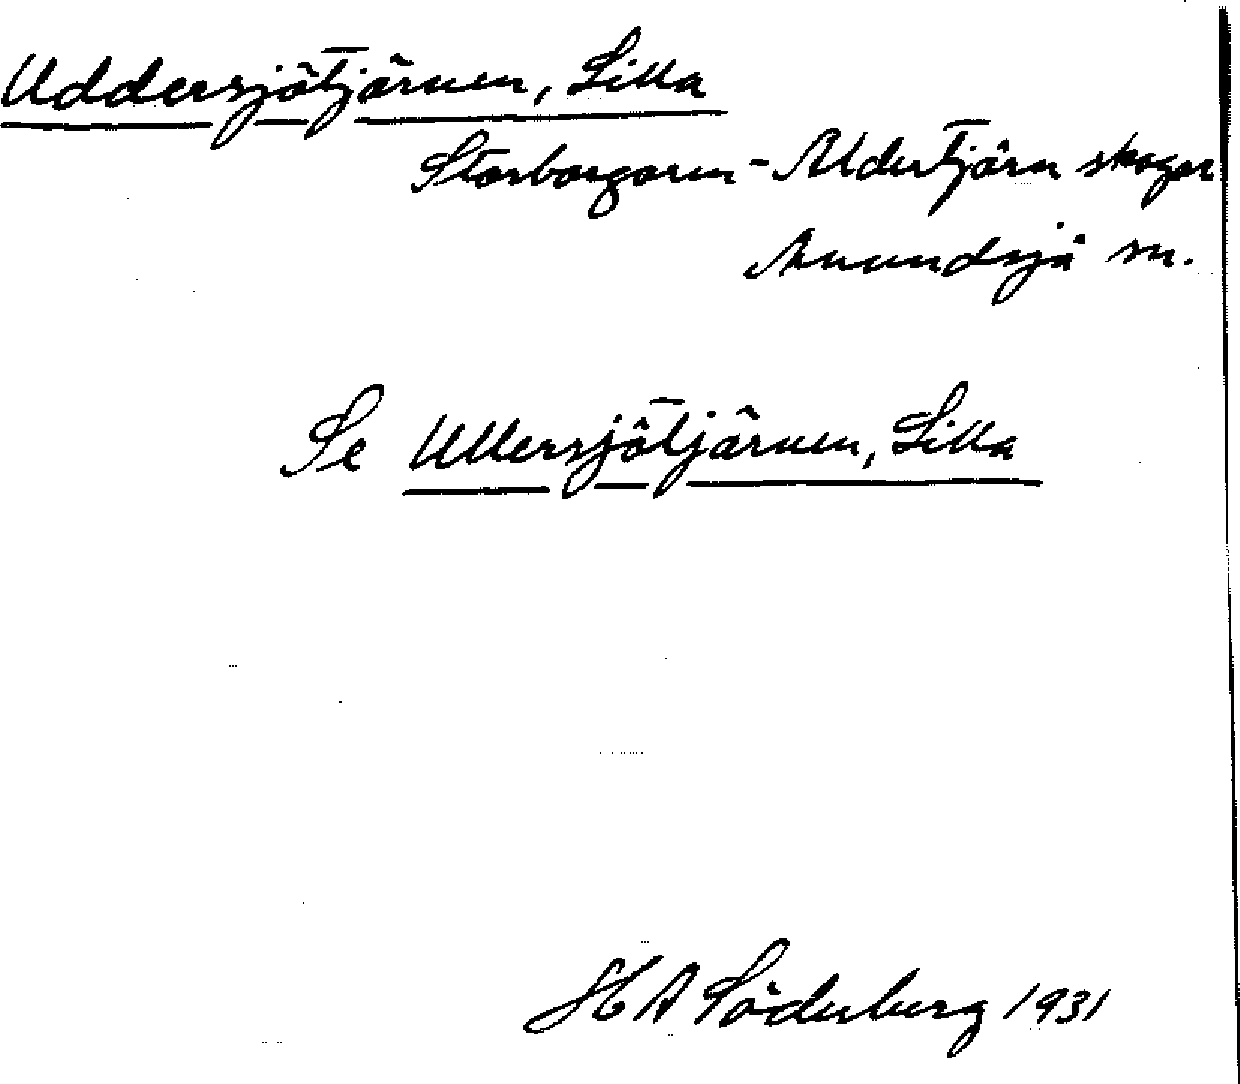 Uddersjötjärnen, Lilla
Storborgaren - Aldertjärn skogar
Anundsjö sn.
Se Ullersjötjärnen, Lilla
H A Söderberg 1931